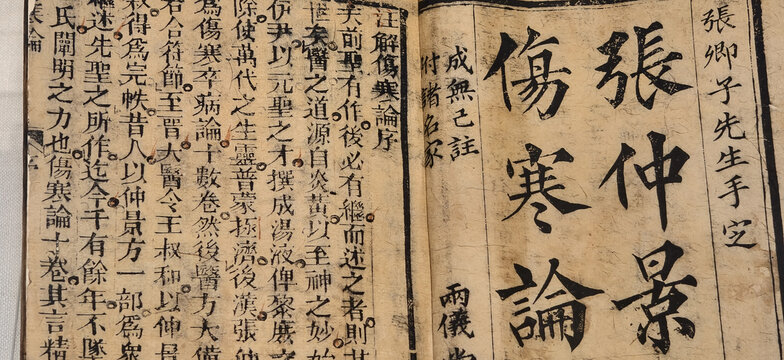 張卿子先生手㝎
張仲景
傷寒論
成無已註
附諸名家
兩儀
注解傷寒論序
夫前聖有作後必有繼而述之者則其
世矣醫之道源自炎黃以至神之妙始
伊尹以元聖之才撰成湯液俾黎庶
除使萬代之生靈普蒙拯濟後漢張仲
為傷寒卒病論十數卷然後醫方大備
若合符節至晉太醫令王叔和以仲景
得為完帙昔人以仲景方一部為衆
繼述先聖之所作迄今千有餘年不墜
氏闡明之力也傷寒論十卷其言精
寒論